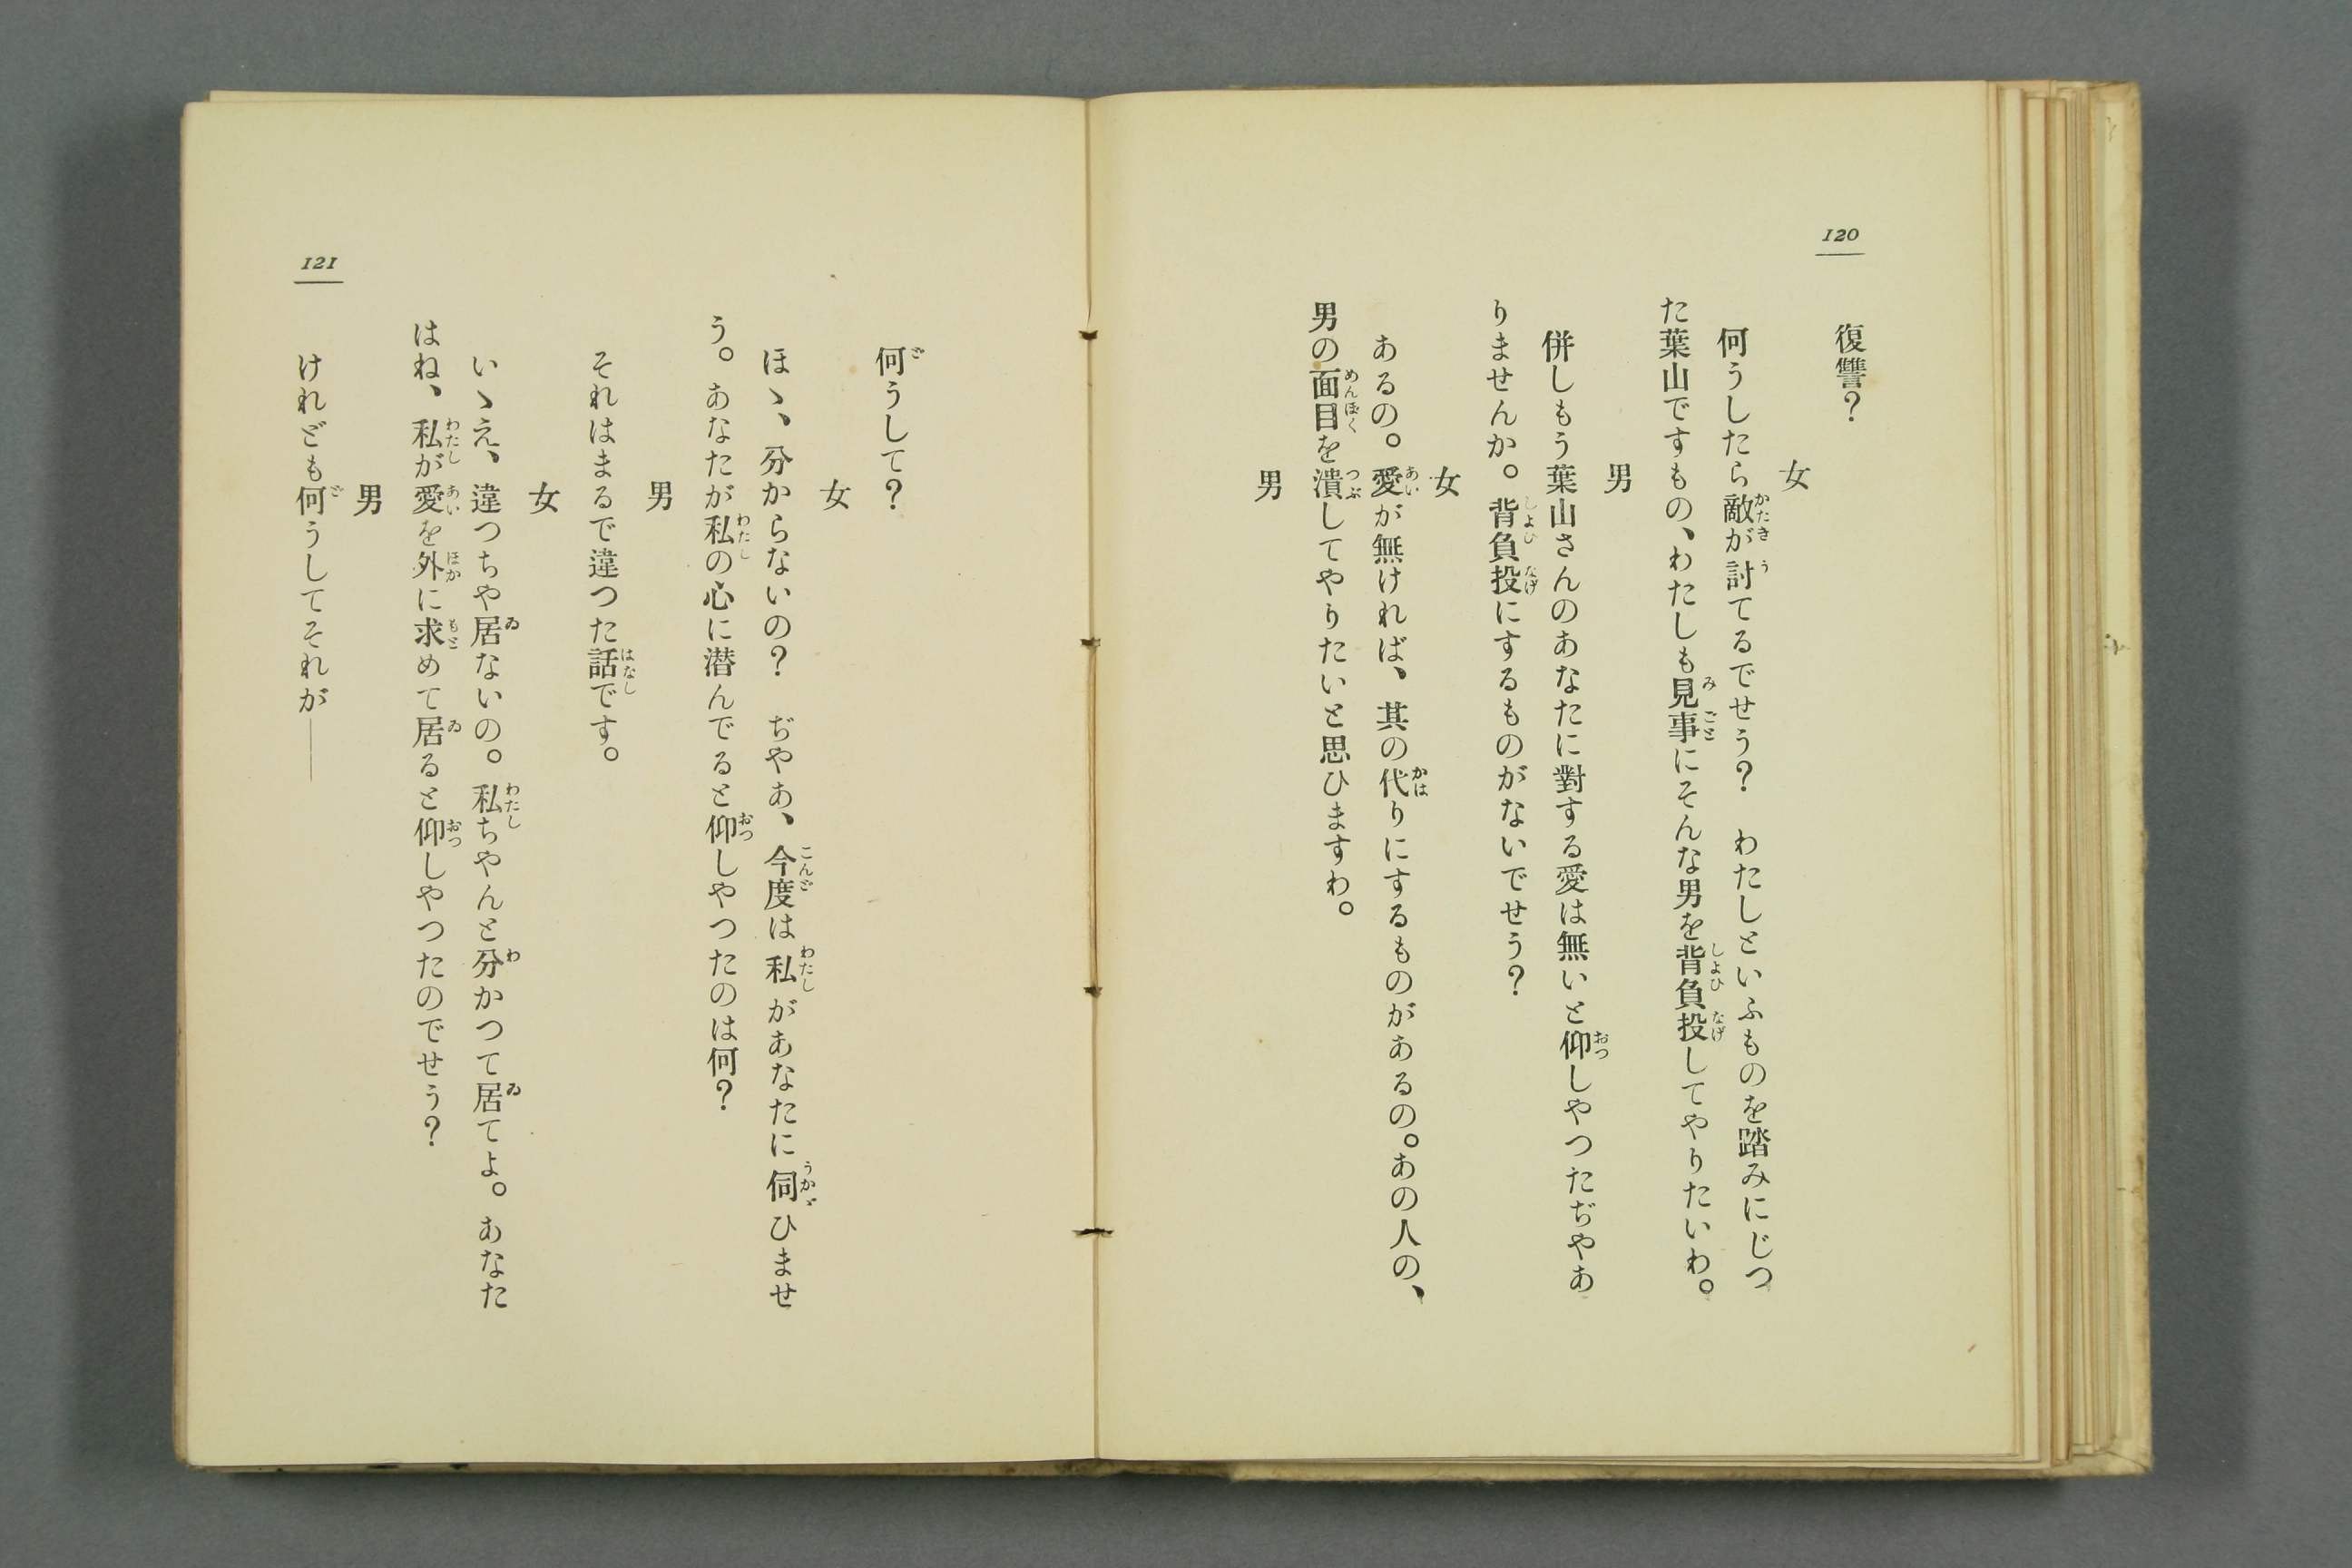 120
復讐?
女
何うしたら敵が討てるでせう? わたしといふものを踏みにじつ
た葉山ですもの、わたしも見事にそんな男を背負投してやりたいわ。
男
併しもう葉山さんのあなたに對する愛は無いと仰しやつたぢやあ
りませんか。背負投にするものがないでせう?
女
あるの。愛が無ければ、其の代りにするものがあるの。あの人の、
男の面目を潰してやりたいと思ひますわ。
男
何うして?
女
ほゝ、分からないの? ぢやあ、今度は私があなたに伺ひませ
う。あなたが私の心に潜んでると仰しやつたのは何?
男
それはまるで違つた話です。
女
いゝえ、違つちや居ないの。私ちやんと分かつて居てよ。あなた
はね、私が愛を外に求めて居ると仰しやつたのでせう?
男
けれども何うしてそれが――
121